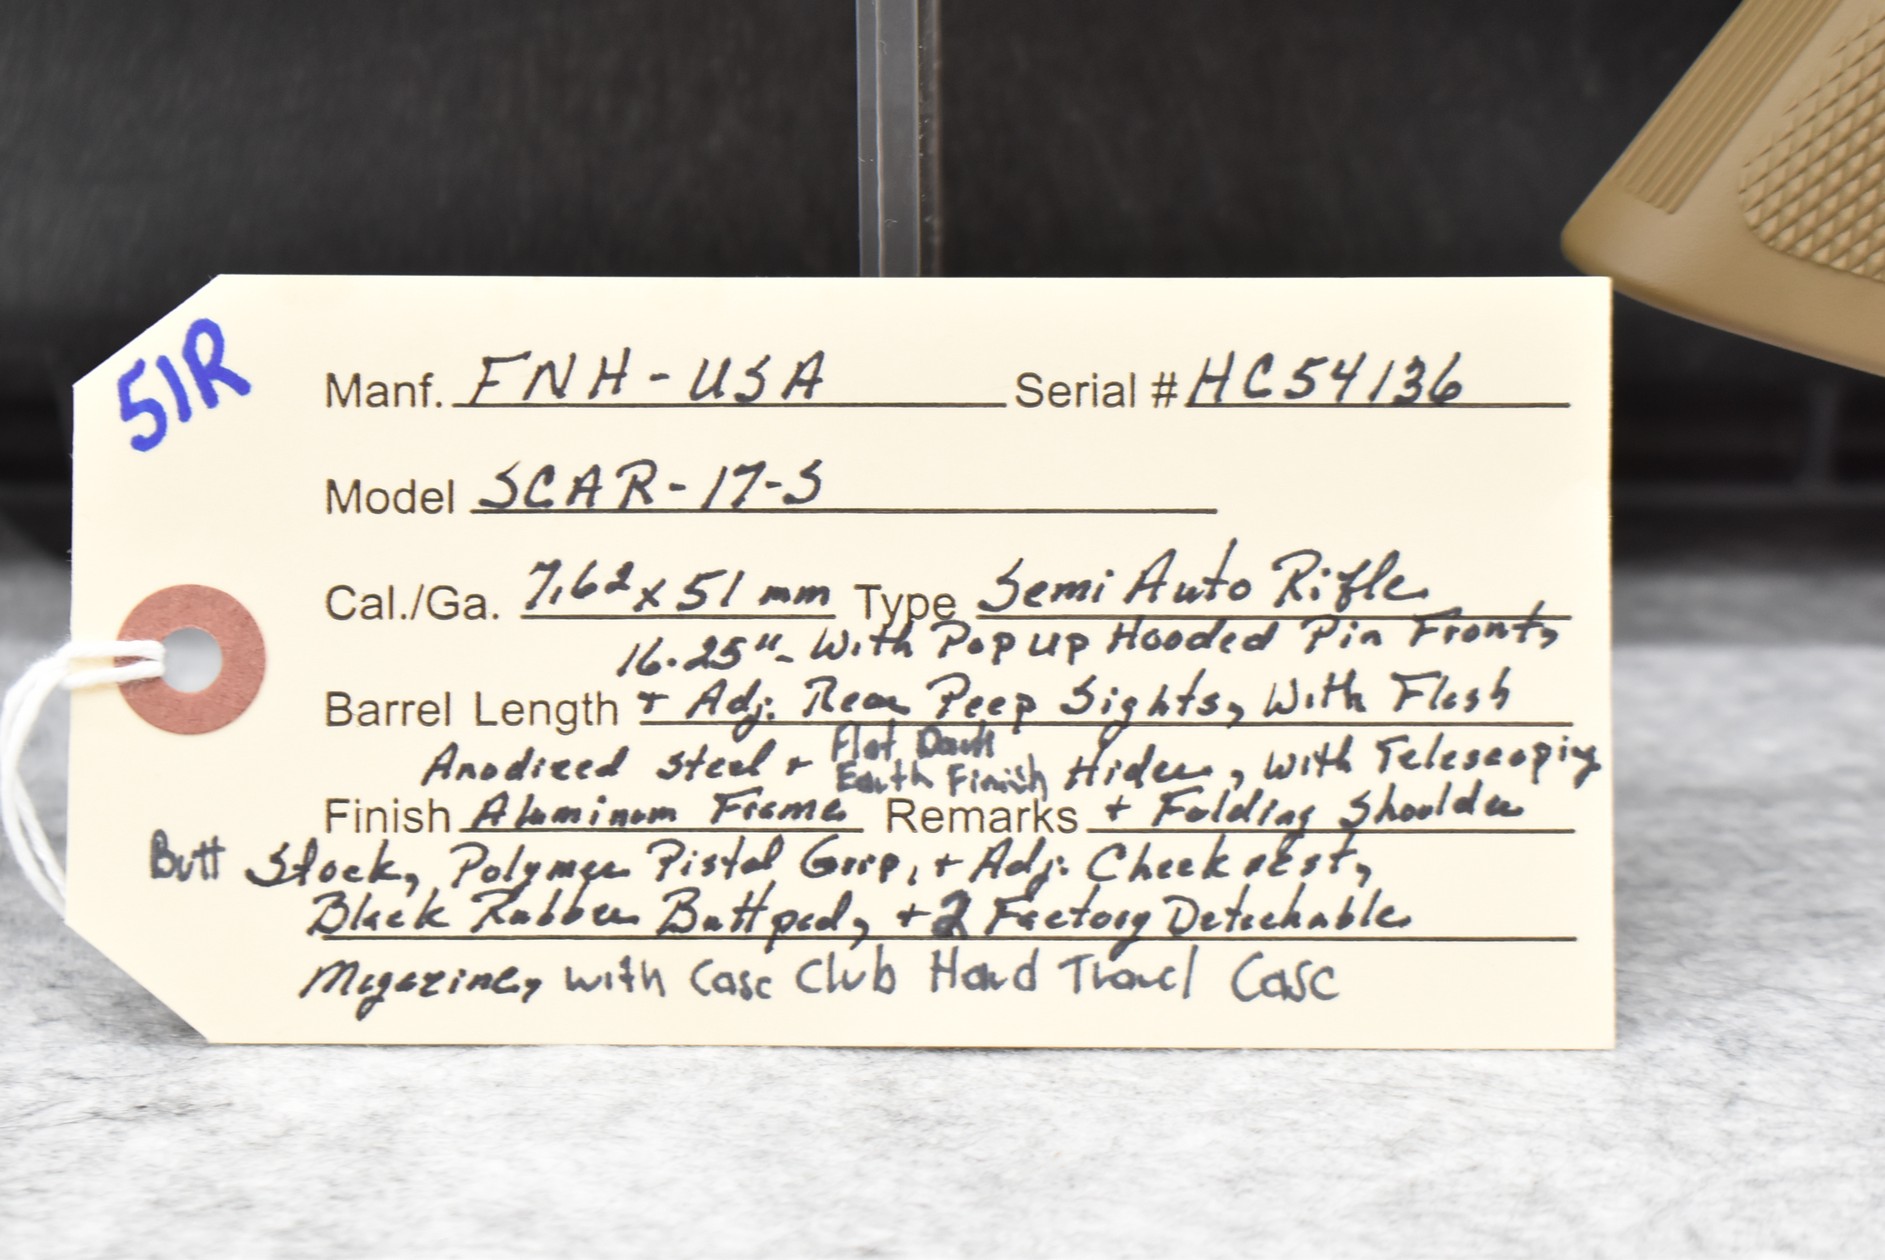 51R
Manf. FNH-USA Serial # HC54136
Model SCAR-17-S
Cal./Ga. 7.62x51mm Type Semi Auto Rifle
16.25"- With Pop up Hooded Pin Front,
Barrel Length + Adj. Rear Peep Sights, With Flash
Anodized Steel + Flat Dark Earth Finish Hider, with Telescoping
Finish Aluminum Frame Remarks + Folding Shoulder
Butt Stock, Polymer Pistol Grip, + Adj. Cheek rest,
Black Rubber Buttpad, + 2 Factory Detachable
Magazine, with Case Club Hard Travel Case